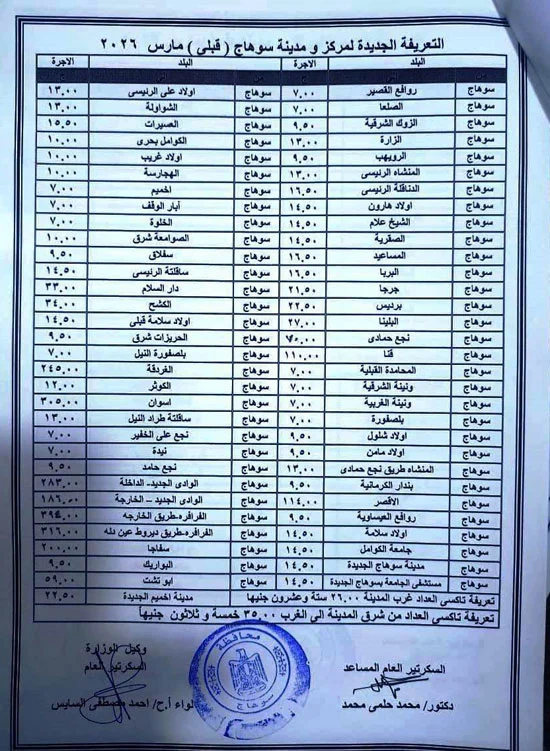 التعريفة الجديدة لمركز و مدينة سوهاج ( قبلى ) مارس ٢٠٢٦
من البلد الاجرة من البلد الاجرة
سوهاج روافع القصير ٧,٠٠ سوهاج اولاد على الرئيسى ١٣,٠٠
سوهاج الصلعا ٧,٠٠ سوهاج الشواولة ١٣,٠٠
سوهاج الزوك الشرقية ٩,٥٠ سوهاج العسيرات ١٥,٥٠
سوهاج الزارة ١٣,٠٠ سوهاج الكوامل بحرى ١٠,٠٠
سوهاج الرويهب ٩,٥٠ سوهاج اولاد غريب ١٠,٠٠
سوهاج المنشاه الرئيسى ١٣,٠٠ سوهاج الهجارسة ١٠,٠٠
سوهاج الدناقلة الرئيسى ١٦,٥٠ سوهاج اخميم ٧,٠٠
سوهاج اولاد هارون ١٤,٥٠ سوهاج أبار الوقف ٧,٠٠
سوهاج الشيخ علام ١٤,٥٠ سوهاج الخلوة ٧,٠٠
سوهاج الصقرية ١٤,٥٠ سوهاج الصوامعة شرق ١٠,٠٠
سوهاج المساعيد ١٦,٥٠ سوهاج سفلاق ٩,٥٠
سوهاج البربا ١٦,٥٠ سوهاج ساقلتة الرئيسى ١٤,٥٠
سوهاج جرجا ٢١,٥٠ سوهاج دار السلام ٣٣,٠٠
سوهاج برديس ٢٢,٥٠ سوهاج الكشح ٣٤,٠٠
سوهاج البلينا ٢٧,٠٠ سوهاج اولاد سلامة قبلى ١٤,٥٠
سوهاج نجع حمادى ٧٥,٠٠ سوهاج الحريزات شرق ٩,٥٠
سوهاج قنا ١١٠,٠٠ سوهاج بلصفورة النيل ٧,٠٠
سوهاج المحامدة القبلية ٧,٠٠ سوهاج الغردقة ٢٤٥,٠٠
سوهاج ونينة الشرقية ٧,٠٠ سوهاج الكوثر ١٢,٠٠
سوهاج ونينة الغربية ٧,٠٠ سوهاج اسوان ٣٠٥,٠٠
سوهاج بلصفورة ٧,٠٠ سوهاج ساقلتة طراد النيل ١٣,٠٠
سوهاج اولاد شلول ٩,٥٠ سوهاج نجع على الخفير ٧,٠٠
سوهاج اولاد مامن ٩,٥٠ سوهاج نيدة ٧,٠٠
سوهاج المنشاه طريق نجع حمادى ١٣,٠٠ سوهاج نجع حامد ٩,٥٠
سوهاج بندار الكرمانية ٩,٥٠ سوهاج الوادى الجديد- الداخلة ٢٨٣,٠٠
سوهاج الاقصر ١١٤,٠٠ سوهاج الوادى الجديد – الخارجة ١٨٦,٠٠
سوهاج روافع العيساوية ٩,٥٠ سوهاج الفرافره-طريق الخارجه
سوهاج اولاد سلامة ١٤,٥٠ سوهاج الفرافره-طريق ديروط عين دله ٣١٦,٠٠
سوهاج جامعة الكوامل ١٤,٥٠ سوهاج سفاجا ٢٠٠,٠٠
سوهاج مدينة سوهاج الجديدة ١٤,٥٠ سوهاج البواريك ٩,٥٠
سوهاج مستشفى الجامعة بسوهاج الجديدة ١٤,٥٠ سوهاج ابو تشت ٥٩,٠٠
تعريفة تاكسى العداد غرب المدينة ٢٦,٠٠ ستة وعشرون جنيها مدينة اخميم الجديدة ٢٢,٥٠
تعريفة تاكسى العداد من شرق المدينة الى الغرب ٣٥,٠٠ خمسة و ثلاثون جنيها
السكرتير العام المساعد
دكتور/ محمد حلمى محمد
محافظة
سوهاج
وكيل الوزارة
السكرتير العام
لواء أ.ح/ احمد مصطفى السايس